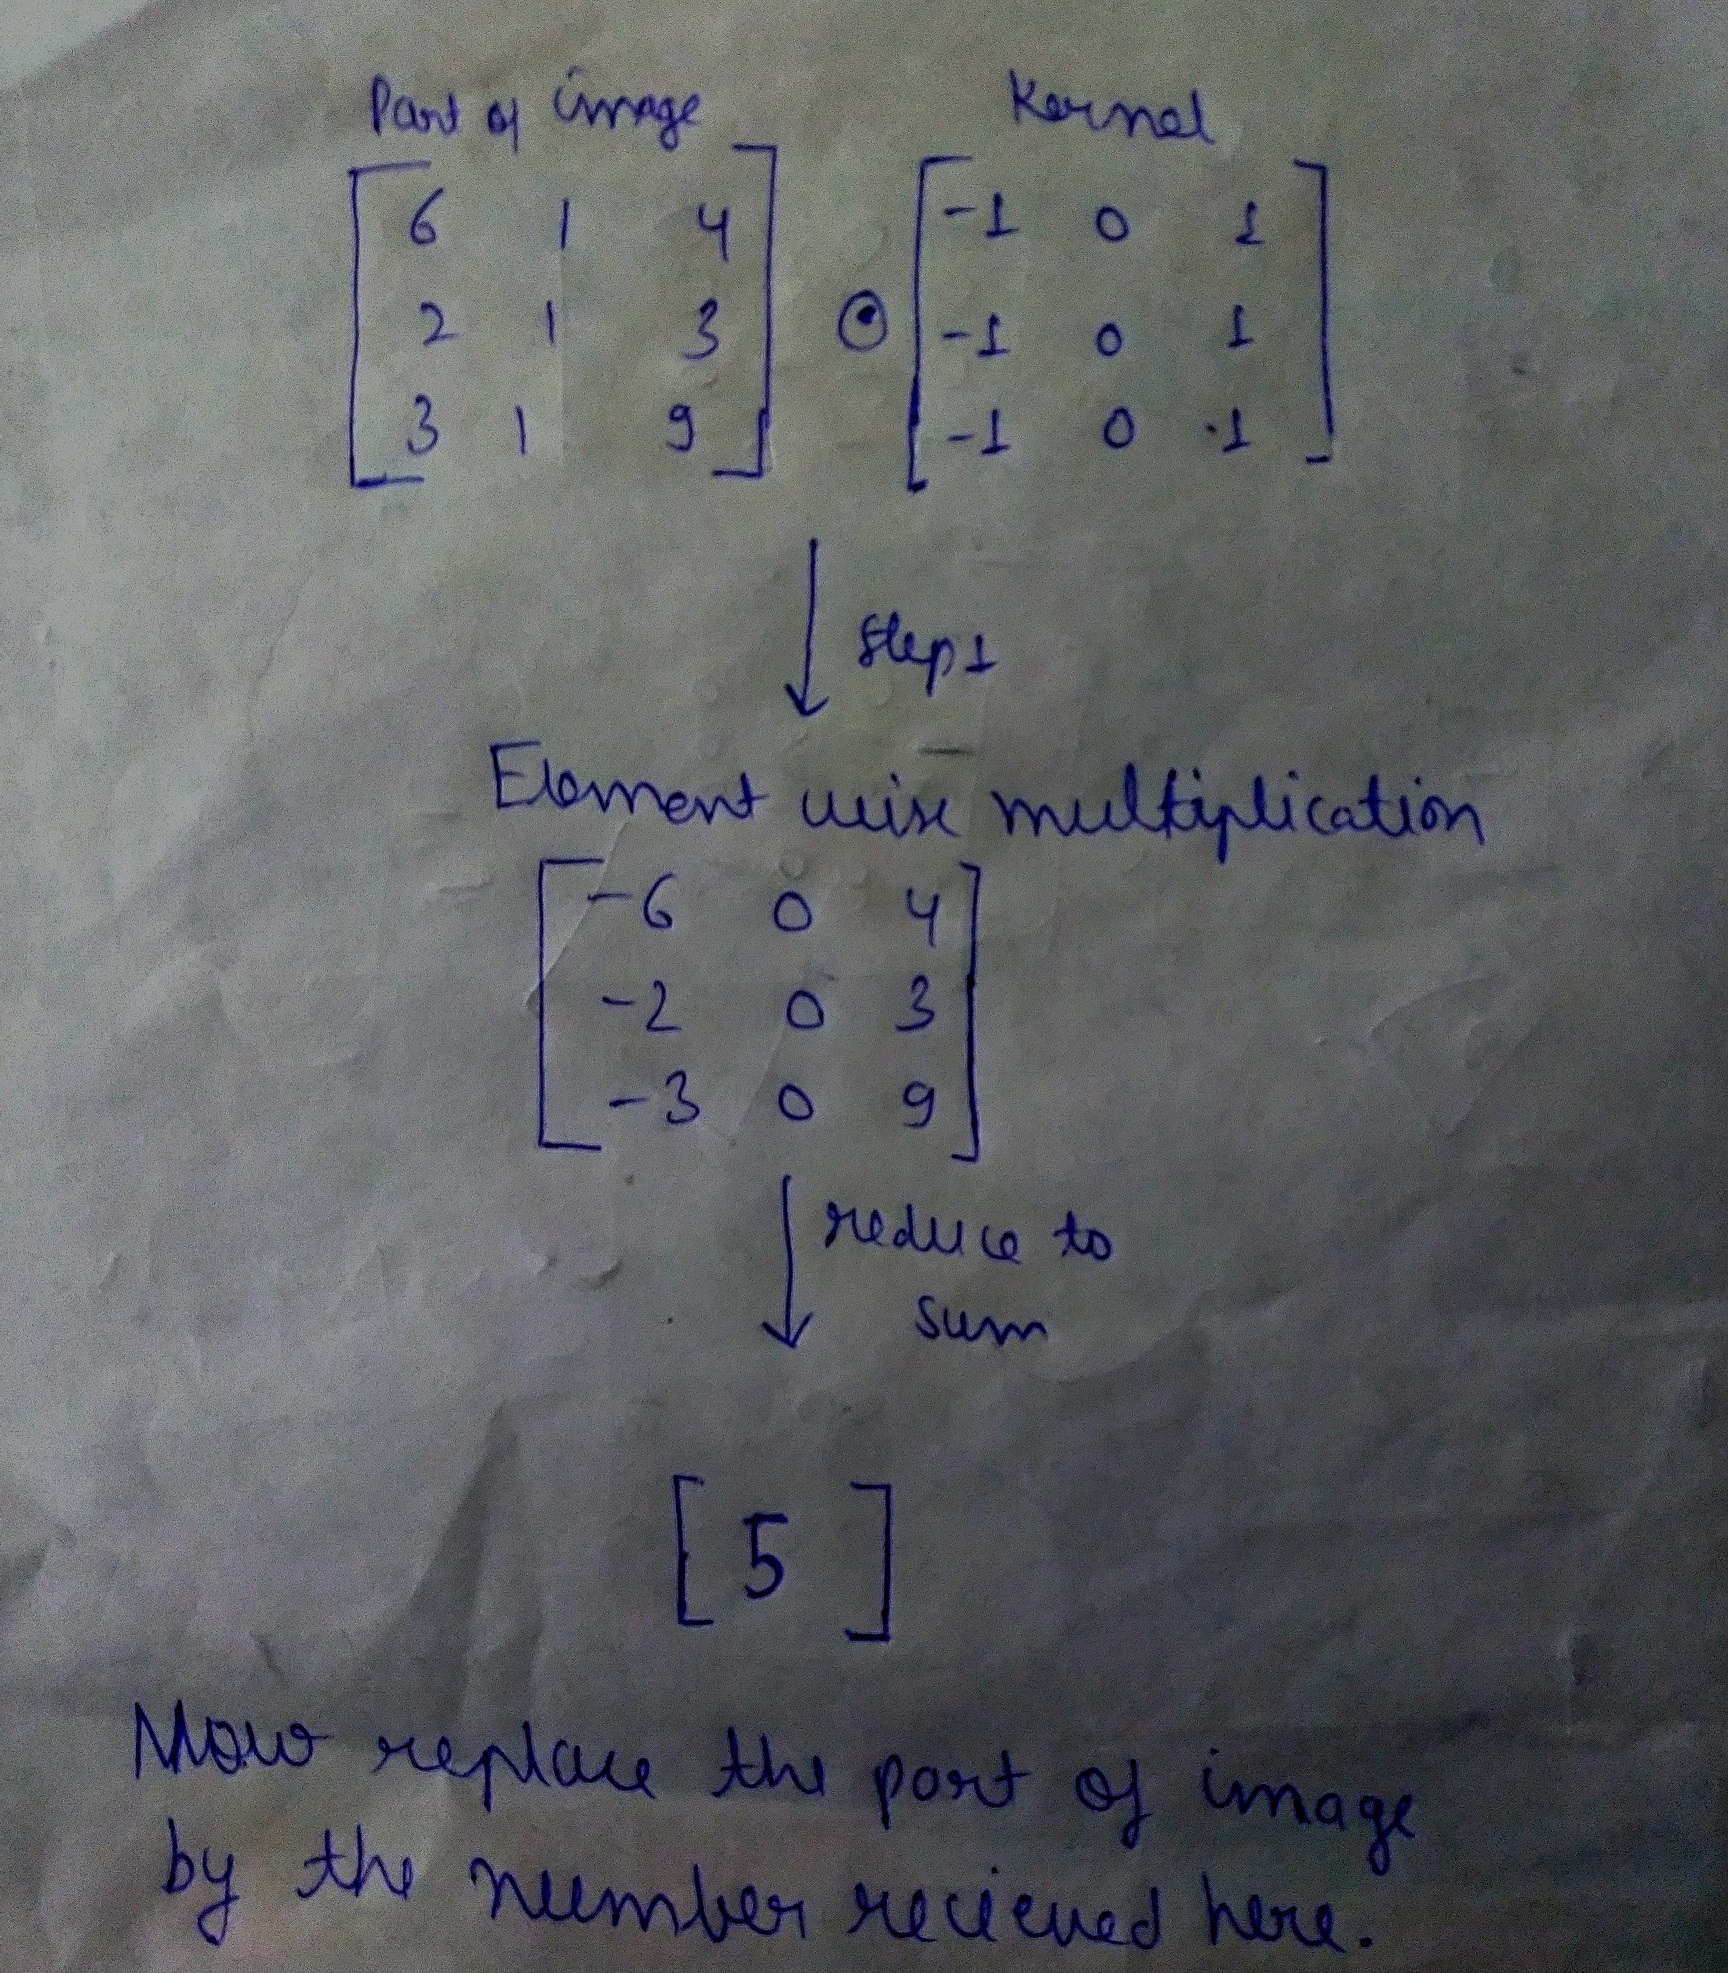 Part of image Kernel
6 1 4 -1 0 1
2 1 3 ⊙ -1 0 1
3 1 9 -1 0 1
step 1
Element wise multiplication
-6 0 4
-2 0 3
-3 0 9
reduce to
sum
[ 5 ]
Now replace the part of image
by the number recieved here.